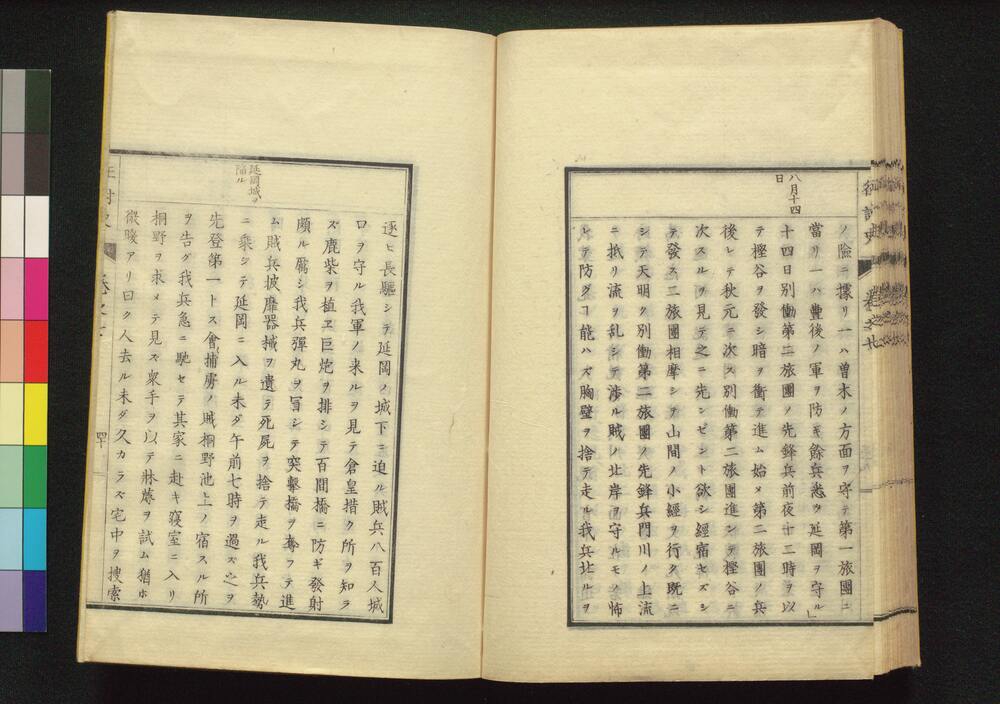 征討史
卷之十
八月十四
日
ノ險ニ據リ一ハ曽木ノ方面ヲ守テ第一旅團ニ
當リ一ハ豊後ノ軍ヲ防ギ餘兵悉ク延岡ヲ守ル」
十四日別働第二旅團ノ先鋒兵前夜十二時ヲ以
テ樫谷ヲ發シ暗ヲ衝テ進ム始メ第二旅團ノ兵
後レテ秋元ニ次ス別働第二旅團進ンテ樫谷ニ
次スルヲ見テ之ニ先ンゼント欲シ經宿セズシ
テ發ス二旅團相摩シテ山間ノ小經ヲ行ク既ニ
シテ天明ク別働第二旅團ノ先鋒兵門川ノ上流
ニ抵リ流ヲ乱シテ渉ル賊ノ北岸ヲ守ルモノ怖
レテ防グヿ能ハズ胸壁ヲ捨テ走ル我兵北ルヲ
延岡城ヲ
陥ル
逐ヒ長驅シテ延岡ノ城下ニ迫ル賊兵八百人城
口ヲ守ル我軍ノ来ルヲ見テ倉皇措ク所ヲ知ラ
ズ鹿柴ヲ植ヱ巨炮ヲ排シテ百間橋ニ防ギ發射
頗ル厲シ我兵彈丸ヲ冐シテ突擊橋ヲ奪フテ進
ム賊兵披靡器械ヲ遺テ死屍ヲ捨テ走ル我兵勢
ニ乘シテ延岡ニ入ル未ダ午前七時ヲ過ズ之ヲ
先登第一トス會捕虜ノ賊桐野池上ノ宿スル所
ヲ告グ我兵急ニ馳セテ其家ニ赴キ寢室ニ入リ
桐野ヲ求メテ見ズ衆手ヲ以テ牀蓐ヲ試ム猶ホ
微暖アリ曰ク人去ル未ダ久カラズ宅中ヲ捜索
卷之十
四十